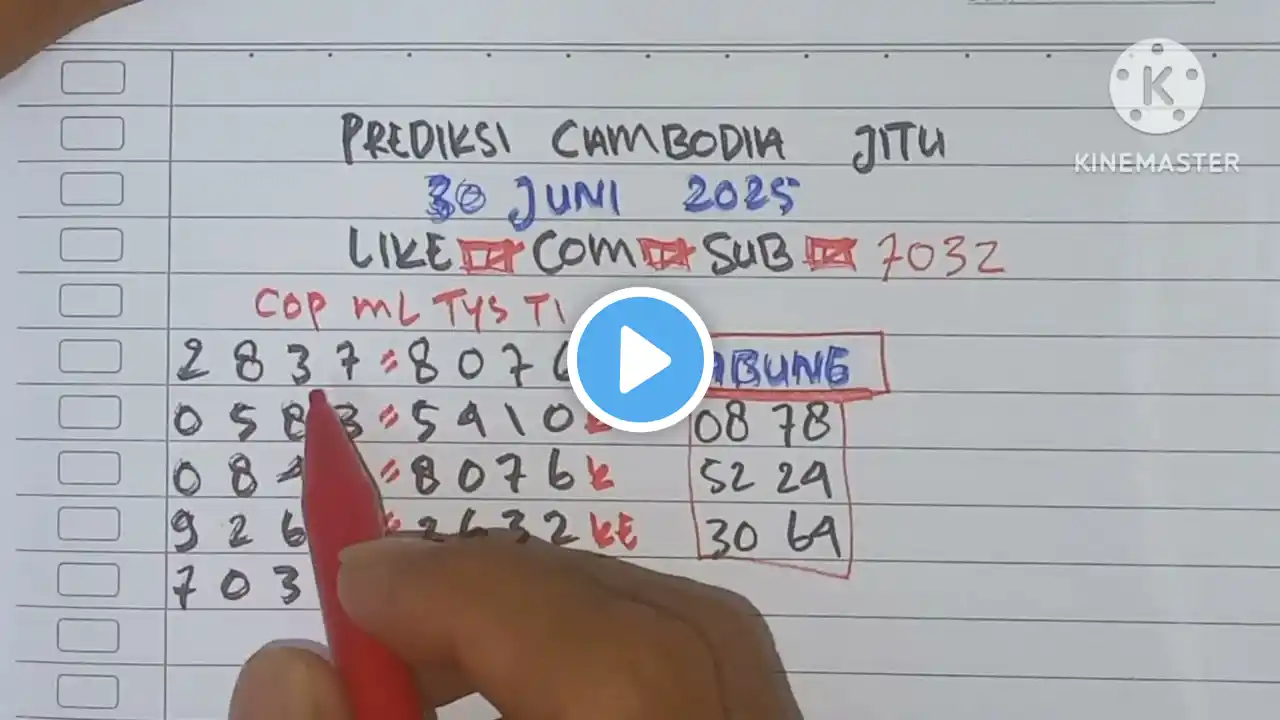 KINEMASTER
PREDIKSI CAMBODIA JITU
30 JUNI 2025
LIKE COM SUB 7032
COP ML TYS TI
2 8 3 7 = 8 0 7 6
0 5 8 3 = 5 4 1 0
08 78
0 8 4 = 8 0 7 6 K
52 24
9 2 6 = 2 6 3 2 KE
30 64
7 0 3